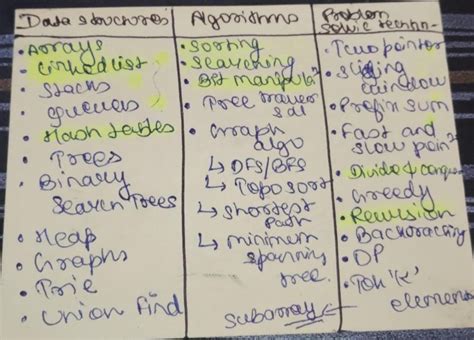 Data structures
• Arrays
• Linked list
• Stacks
• queues
• Hash tables
• Trees
• Binary
Search Trees
• Heap
• Graphs
• Trie
• Union Find
Algorithms
• Sorting
• Searching
• Bit manipul
• Tree traver
sal
• Graph
algo
↳ DFS/BFS
↳ Topo sort
↳ shortest
path
↳ minimum
spanning
tree.
subarray
Problem
• Two pointer
• Sliding
window
• Prefix sum
• Fast and
slow point
• Divide & conque
• Greedy
• Recursion
• Backtracking
• DP
• Top 'K'
elements